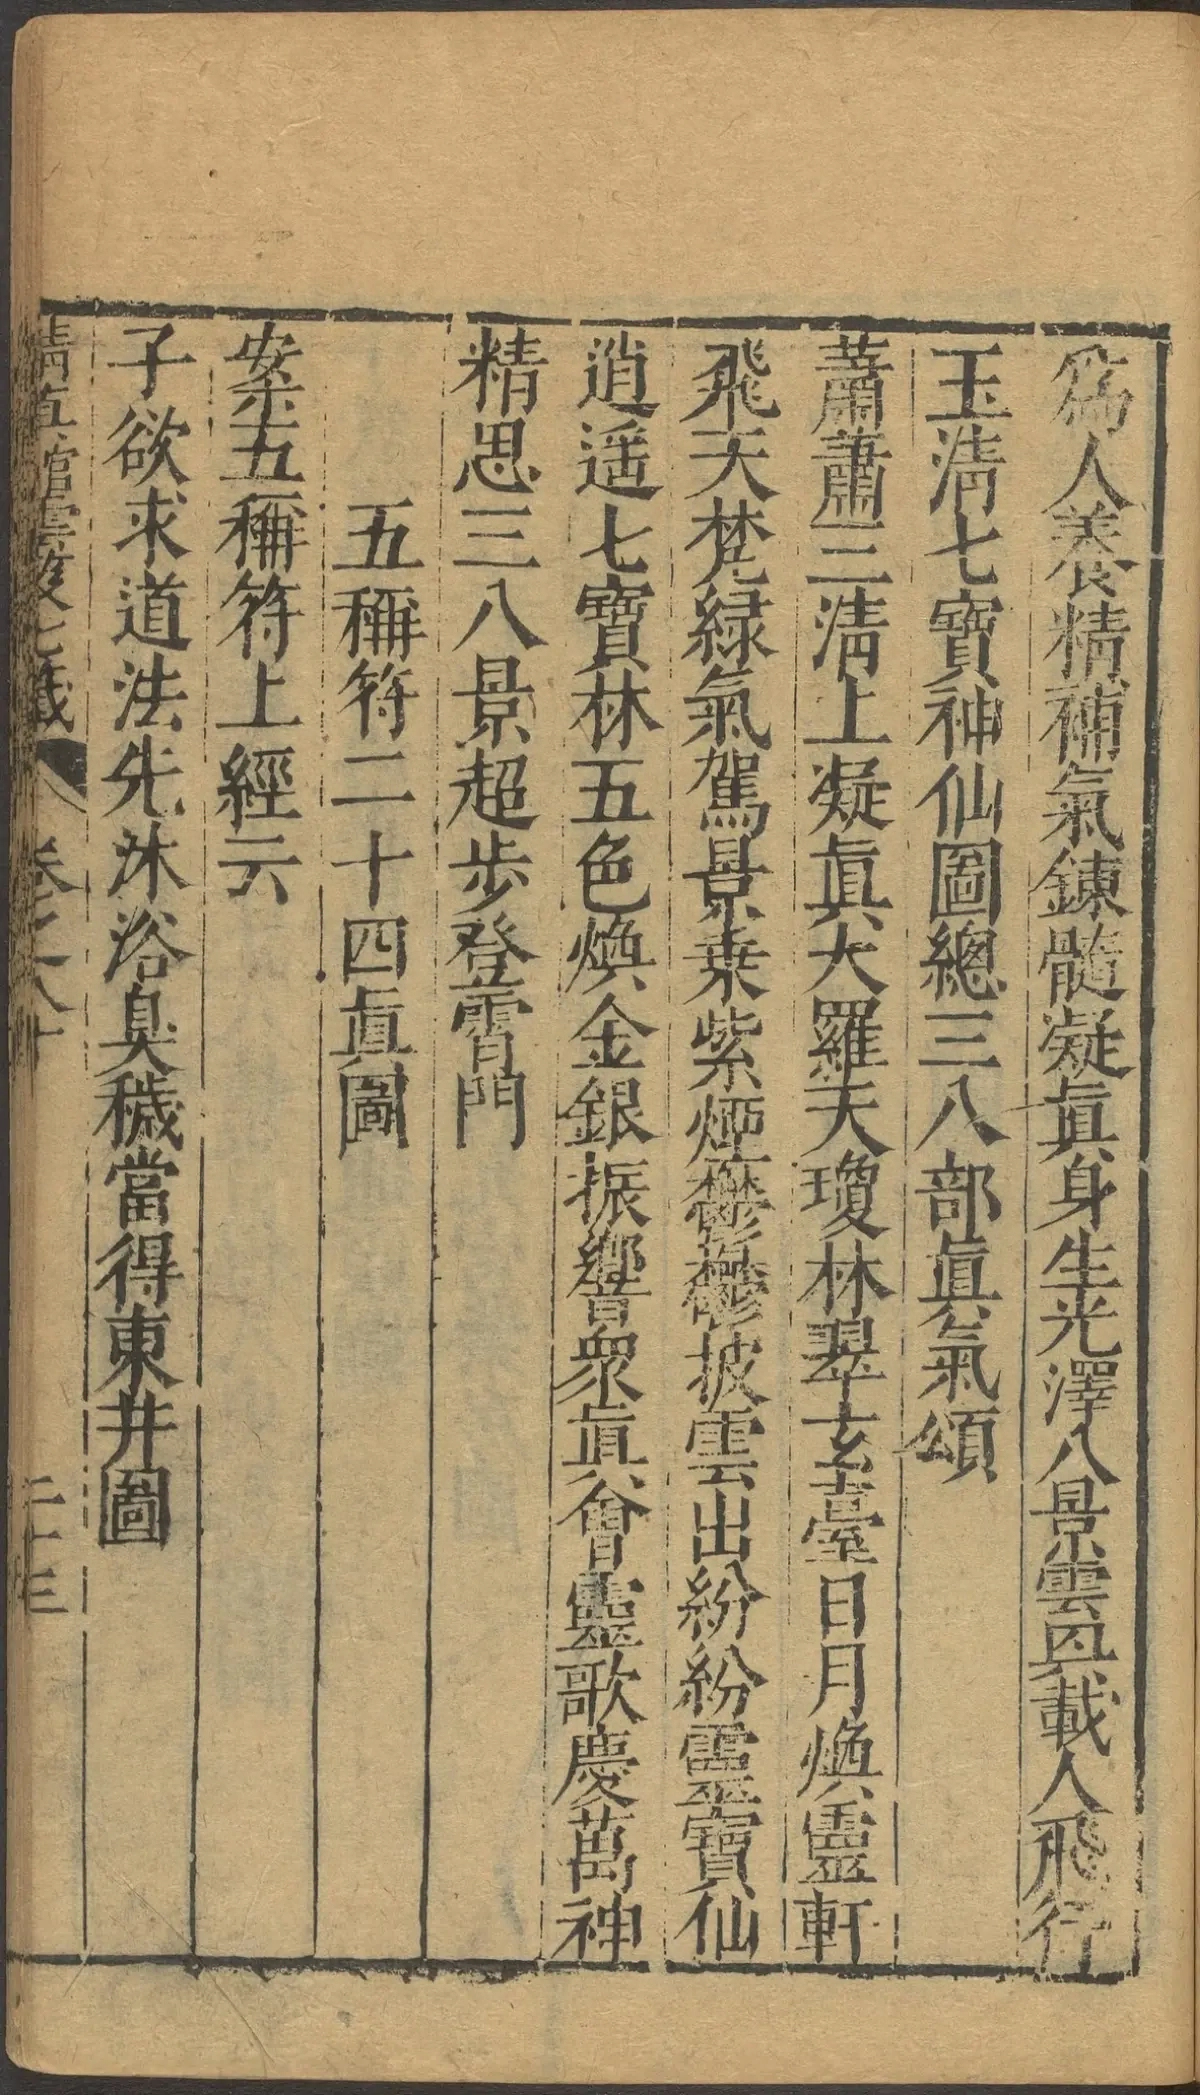 爲人養精補氣鍊髓凝眞身生光澤八景雲輿載人飛行
玉淸七寶神仙圖總三八部眞氣頌
蕭蕭三淸上凝眞大羅天瓊林翠玄臺日月煥靈軒
飛天梵緑氣駕景乗紫煙鬱鬱披雲出紛紛靈寶仙
逍遥七寶林五色煥金銀振響衆眞會靈歌慶萬神
精思三八景超步登霄門
五稱符二十四眞圖
案五稱符上經云
子欲求道法先沐浴臭穢當得東井圖
卷之八十
二十三